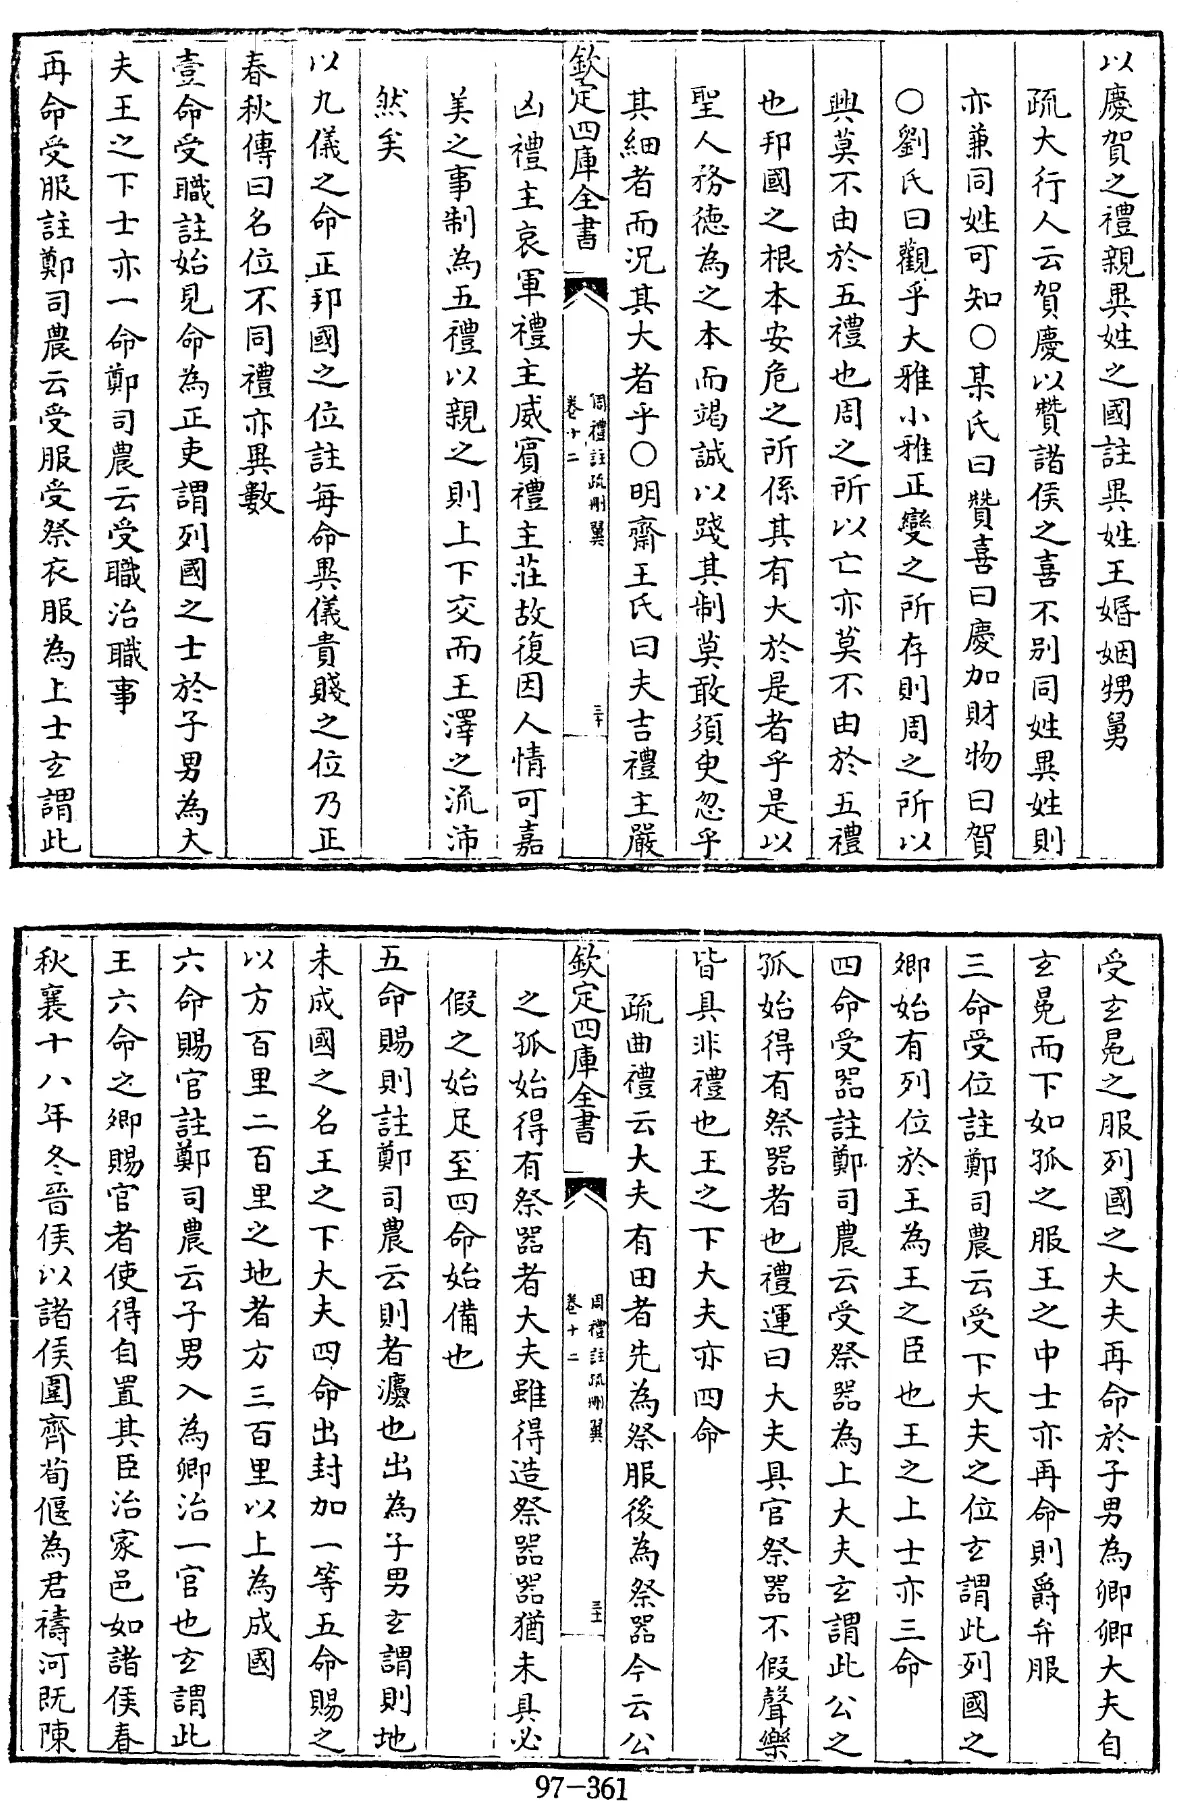 以慶賀之禮親異姓之國註異姓王婚姻甥舅
疏大行人云賀慶以贊諸侯之喜不别同姓異姓則
亦兼同姓可知○某氏曰贊喜曰慶加財物曰賀
○劉氏曰觀乎大雅小雅正變之所存則周之所以
興莫不由於五禮也周之所以亡亦莫不由於五禮
也邦國之根本安危之所係其有大於是者乎是以
聖人務徳為之本而竭誠以踐其制莫敢須臾忽乎
其細者而况其大者乎○明齋王氏曰夫吉禮主嚴
欽定四庫全書
周禮註疏刪翼
卷十二
三十
凶禮主哀軍禮主威賔禮主莊故復因人情可嘉
美之事制為五禮以親之則上下交而王澤之流沛
然矣
以九儀之命正邦國之位註每命異儀貴賤之位乃正
春秋傳曰名位不同禮亦異數
壹命受職註始見命為正吏謂列國之士於子男為大
夫王之下士亦一命鄭司農云受職治職事
再命受服註鄭司農云受服受祭衣服為上士玄謂此
受玄冕之服列國之大夫再命於子男為卿卿大夫自
玄冕而下如孤之服王之中士亦再命則爵弁服
三命受位註鄭司農云受下大夫之位玄謂此列國之
卿始有列位於王為王之臣也王之上士亦三命
四命受器註鄭司農云受祭器為上大夫玄謂此公之
孤始得有祭器者也禮運曰大夫具官祭器不假聲樂
皆具非禮也王之下大夫亦四命
疏曲禮云大夫有田者先為祭服後為祭器今云公
欽定四庫全書
周禮註疏刪翼
卷十二
三十一
之孤始得有祭器者大夫雖得造祭器器猶未具必
假之始足至四命始備也
五命賜則註鄭司農云則者灋也出為子男玄謂則地
未成國之名王之下大夫四命出封加一等五命賜之
以方百里二百里之地者方三百里以上為成國
六命賜官註鄭司農云子男入為卿治一官也玄謂此
王六命之卿賜官者使得自置其臣治家邑如諸侯春
秋襄十八年冬晉侯以諸侯圍齊荀偃為君禱河既陳
97-361